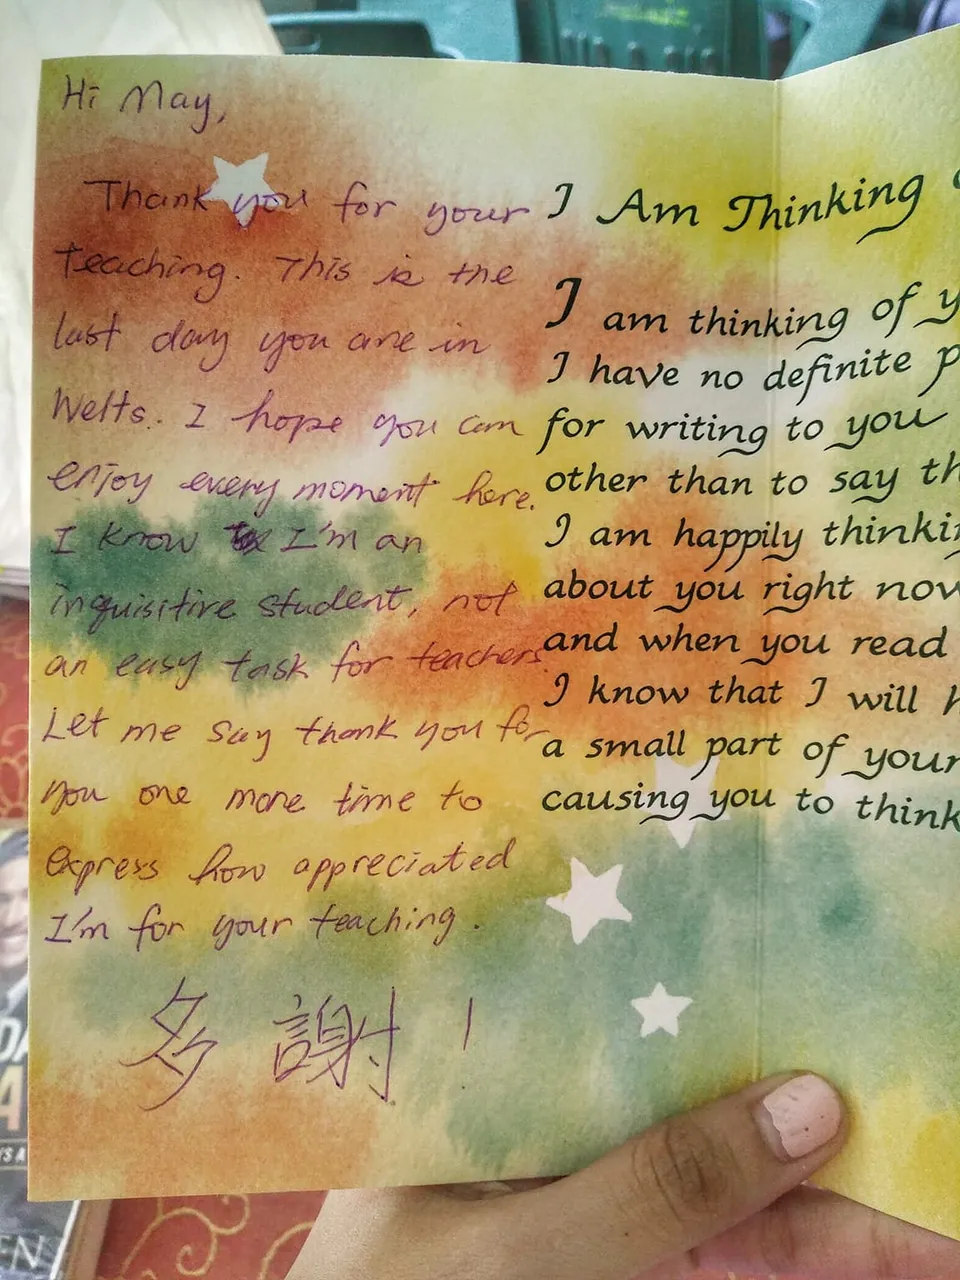 Hi May,
Thank you for your
teaching. This is the
last day you are in
Welts. I hope you can
enjoy every moment here.
I know I'm an
inquisitive student, not
an easy task for teachers.
Let me say thank you for
you one more time to
express how appreciated
I'm for your teaching.
多謝!
I Am Thinking
I am thinking of y
I have no definite p
for writing to you
other than to say th
I am happily thinki
about you right now
and when you read
I know that I will h
a small part of your
causing you to think
EN